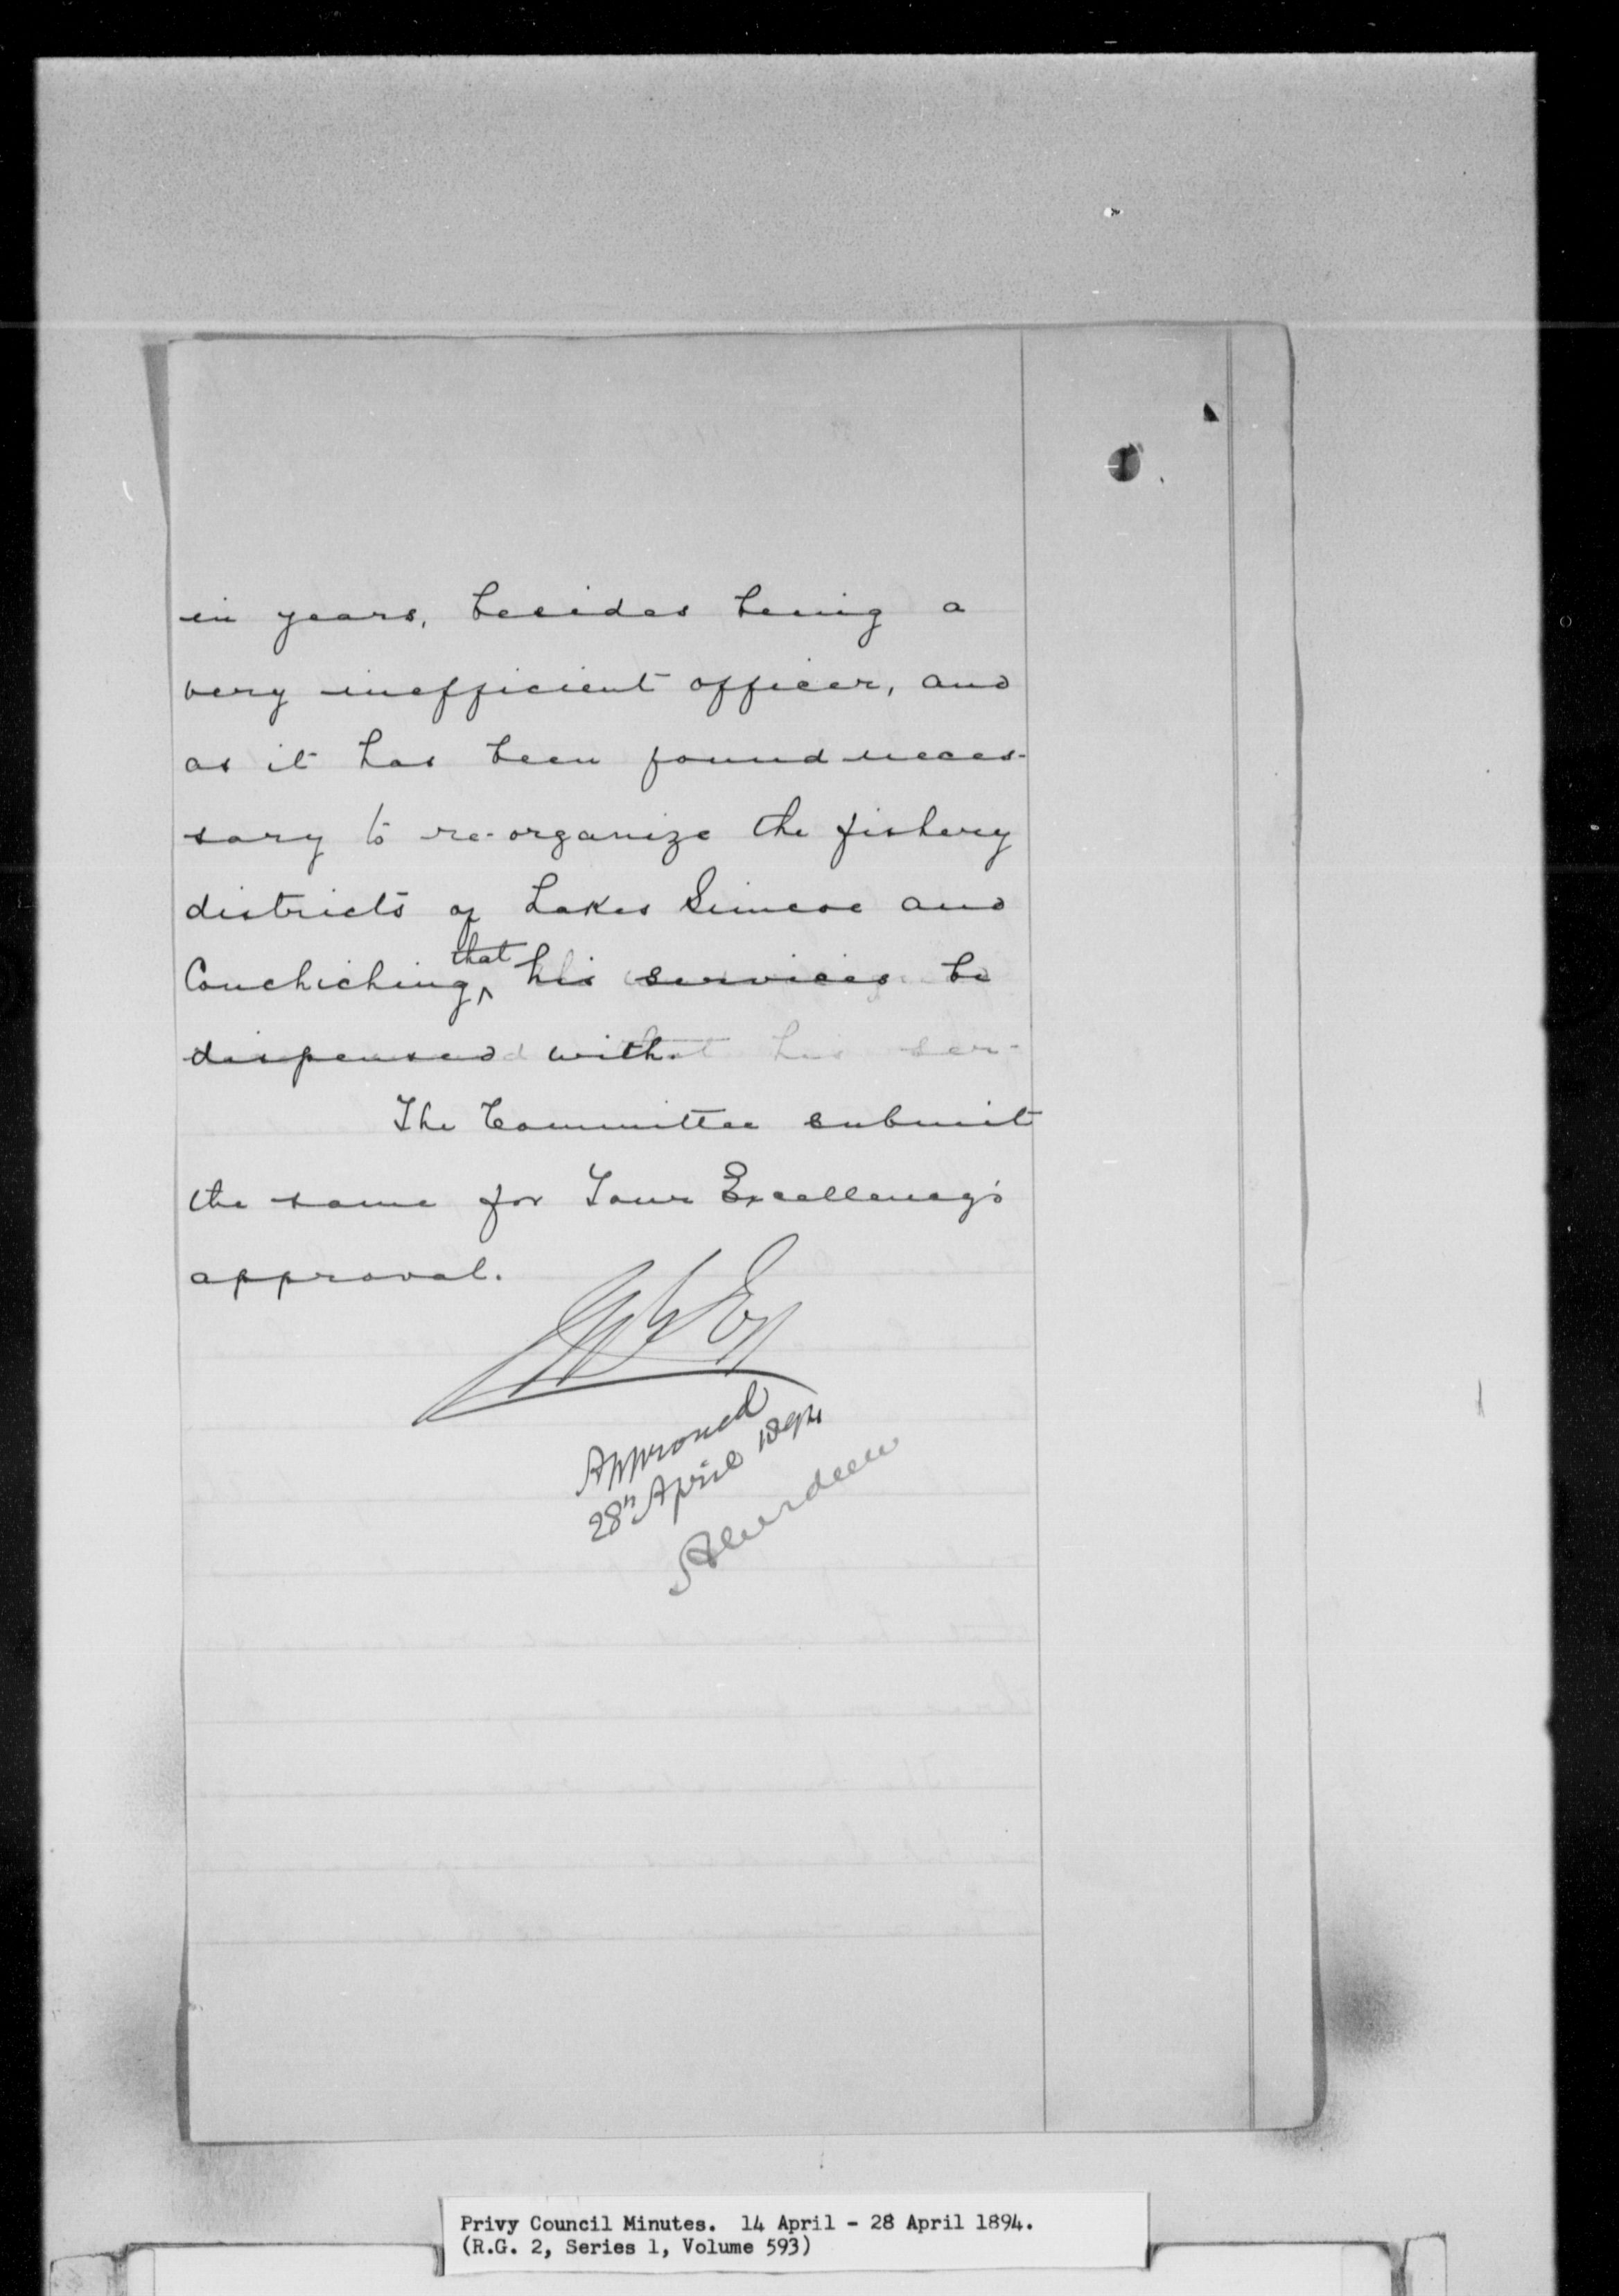 in years, besides being a
very inefficient officer, and
as it has been found neces-
sary to re-organize the fishery
districts of Lakes Simcoe and
that
Couchiching, his services be
dispensed with.
The Committee submit
the same for Your Excellency's
approval.
Approved
28th April 1894
Aberdeen
Privy Council Minutes. 14 April - 28 April 1894.
(R.G. 2, Series 1, Volume 593)